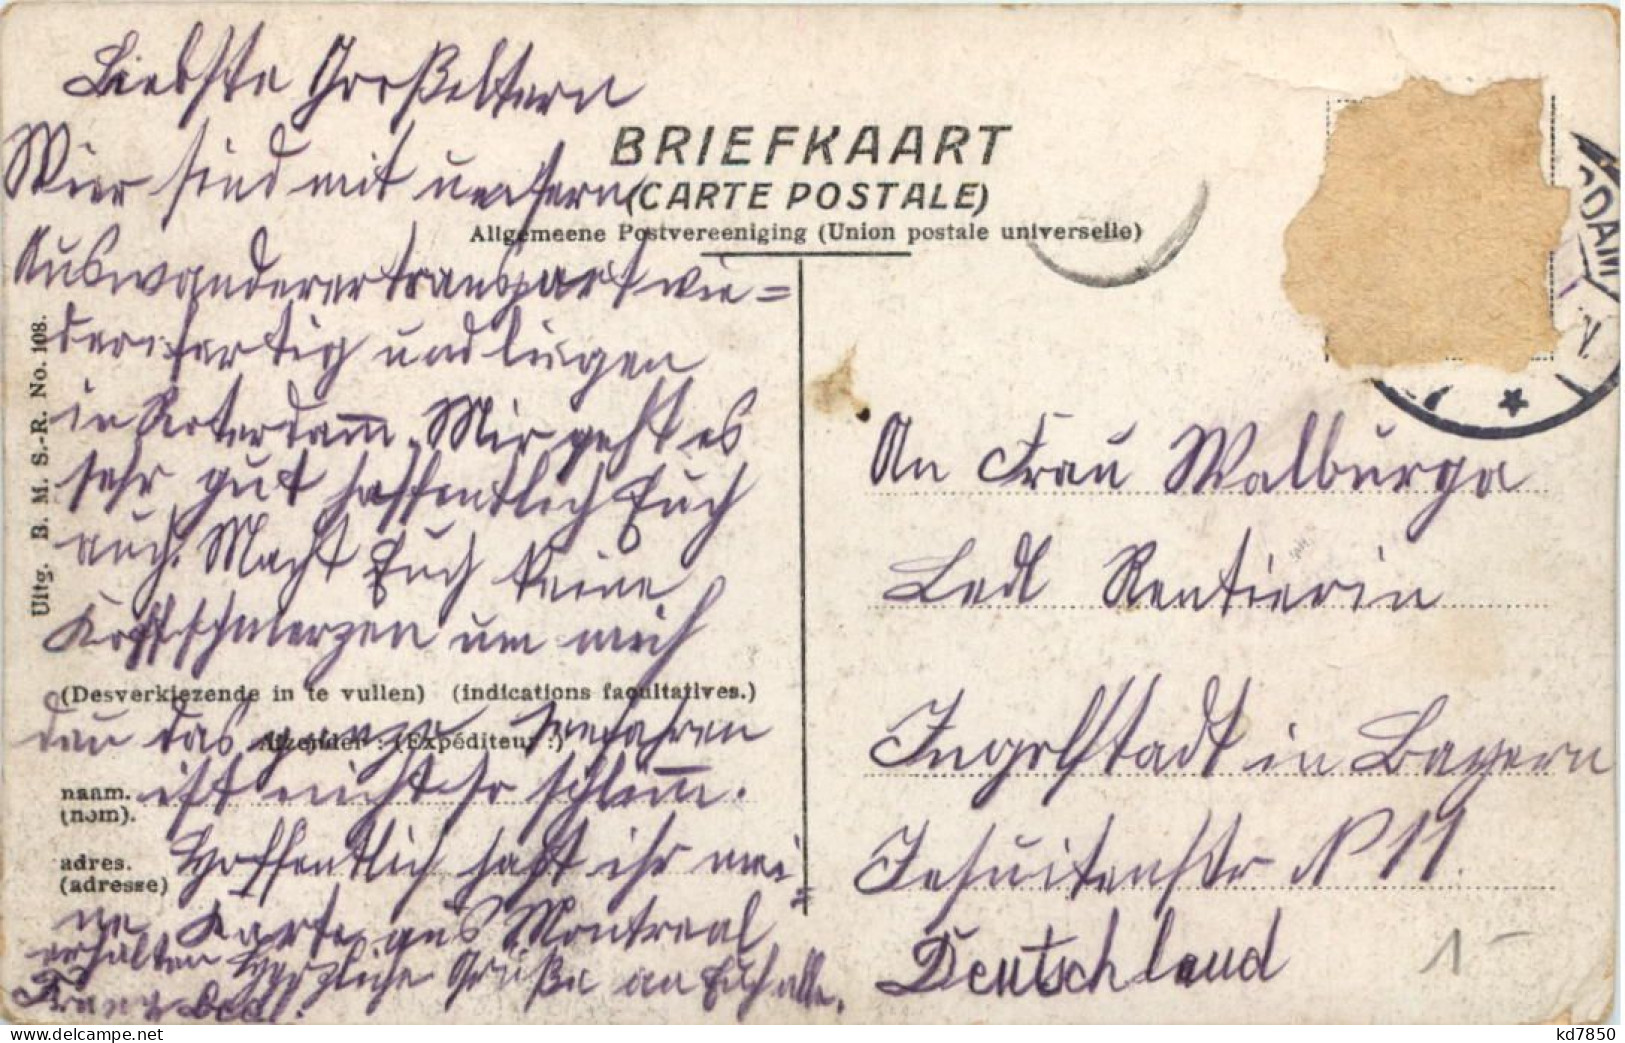 Liebste Großeltern
Wier sind mit unsern
Auswanderertransport wie=
der fertig und liegen
in Roterdam̅. Mir geht es
sehr gut hoffentlich Euch
auch. Macht Euch keine
Kopfschmerzen um mich
den das ganze Seefahren
ist nicht so schlim̅.
Hoffentlich habt ihr mei=
ne Karte aus Montreal
erhalten Herzliche Grüße an Euch alle.
Franz Ledl.
BRIEFKAART
(CARTE POSTALE)
Allgemeene Postvereeniging (Union postale universelle)
Uitg. B. M. S.-R. No. 108.
(Desverkiezende in te vullen) (indications facultatives.)
Afzender : (Expéditeur :)
naam.
(nom).
adres.
(adresse)
DAM
An Frau Walburga
Ledl Rentierin
Ingolstadt in Bayern
Jesuitenstr N 11.
Deutschland
1-
kd7850